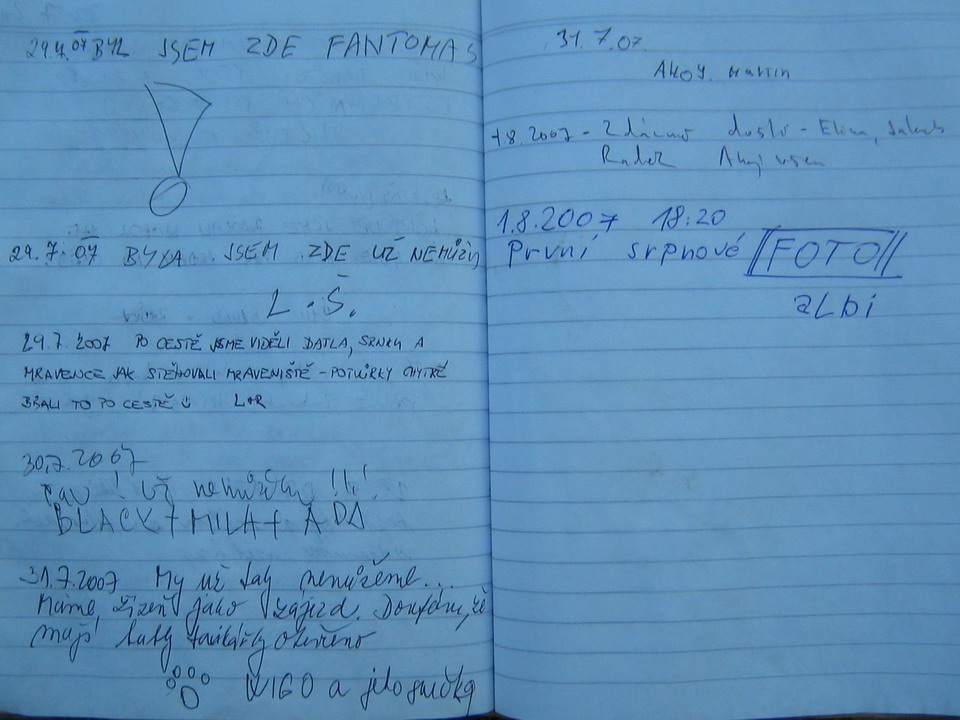 29.7.07 BYL JSEM ZDE FANTOMAS
29.7.07 BYLA JSEM ZDE UŽ NEMŮŽU
L.Š.
29.7.2007 PO CESTĚ JSME VIDĚLI DATLA, SRNKU A
MRAVENCE JAK STĚHOVALI MRAVENIŠTĚ - POTVŮRKY CHYTRÉ
BRALI TO PO CESTĚ L+R
30.7.2007
čau! už nemůžu !!!
BLACK + MILA + ADA
31.7.2007 My už taky nemůžeme...
Máme žízeň jako zájezd. Doufám, že
mají tady otevřeno
VIGO a jeho smečka
31.7.07.
AHOJ. Martin
1.8.2007 - Zdárně došli -
Radek Ahoj všem
1.8.2007 18:20
První srpnové FOTO
aLbi